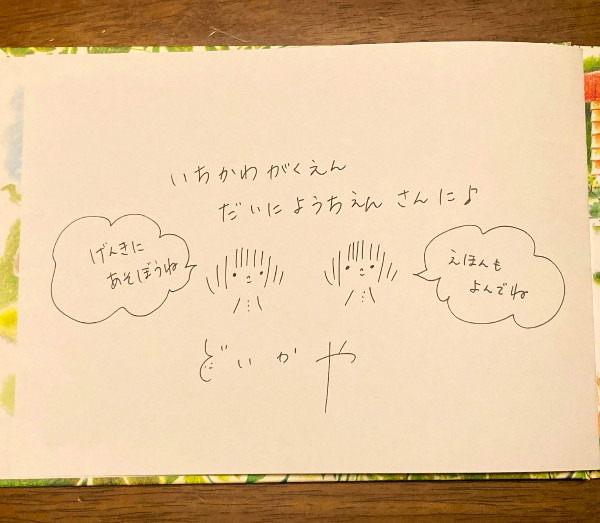 いちかわがくえん
だいにようちえん さんに♪
げんきに
あそぼうね
えほんも
よんでね
どいかや